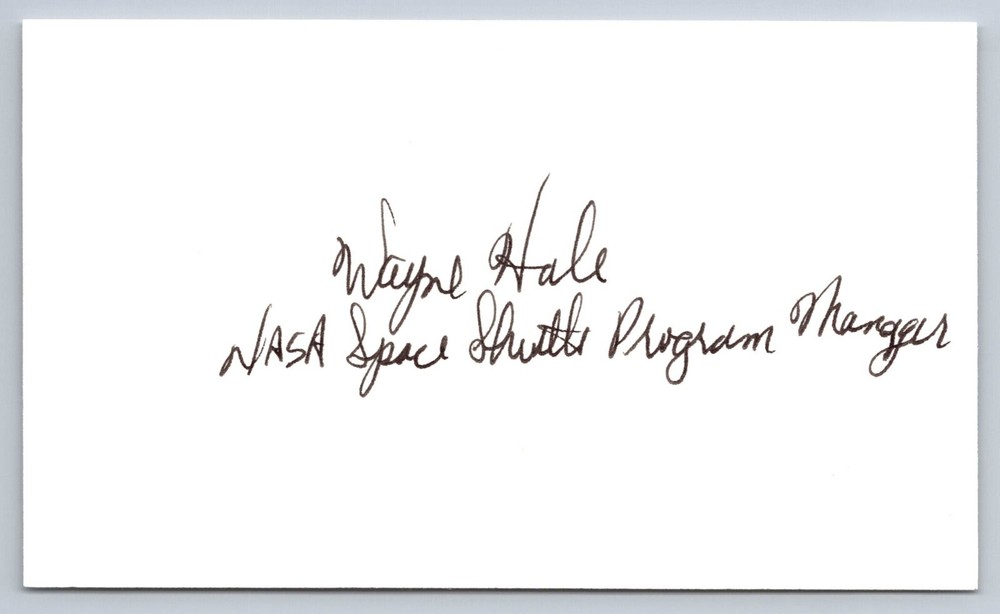 Wayne Hale
NASA Space Shuttle Program Manager